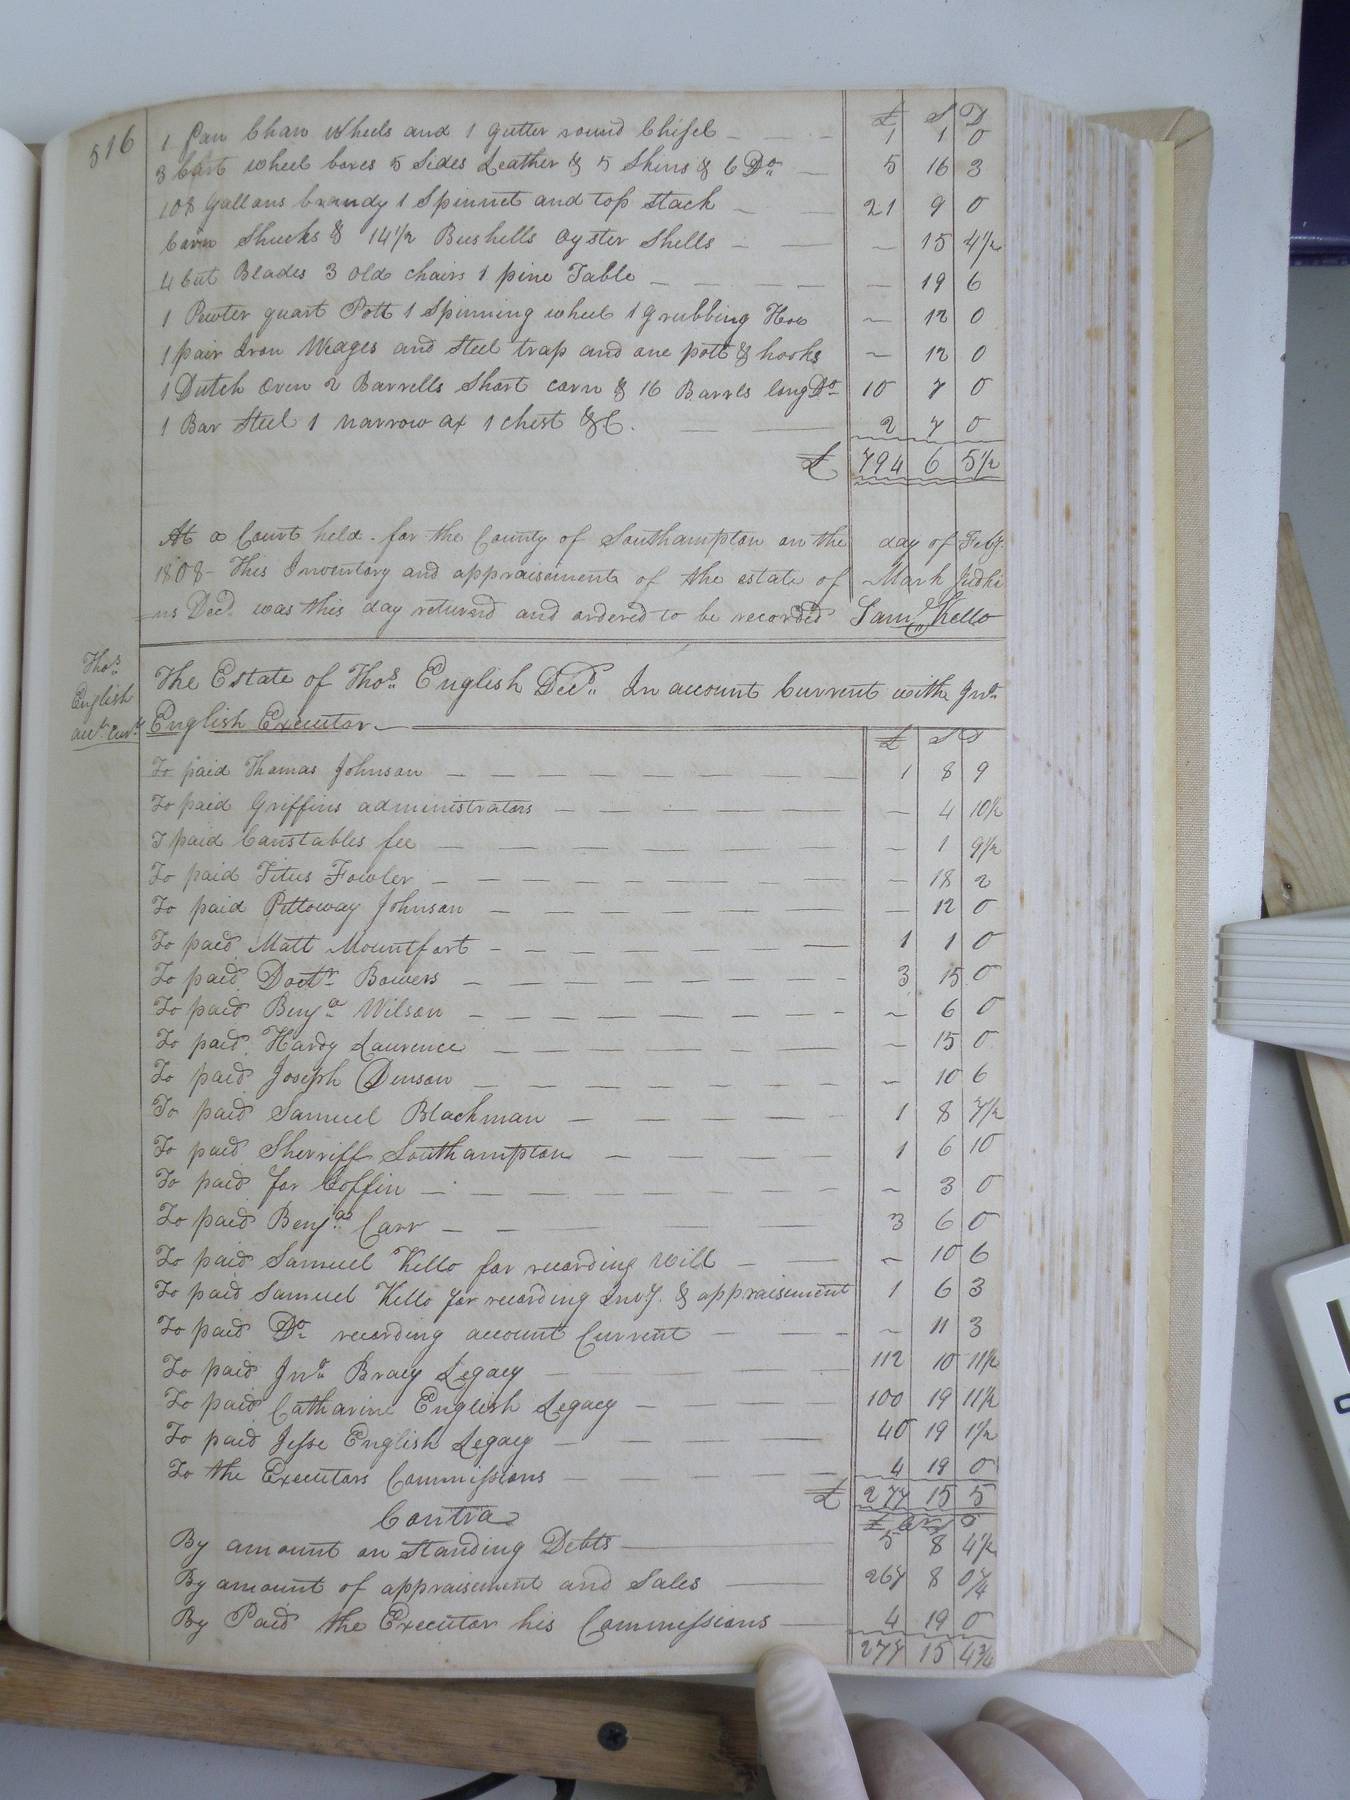 516
£ S D
1 pair Chair wheels and 1 gutter round Chisel 1 1 0
3 Cart wheel boxes 5 Sides Leather & 5 Skins & 6 Do 5 16 3
108 Gallons brandy 1 Spinnet and top stack 21 9 0
Corn Shucks & 14½ Bushells Oyster Shells — 15 4½
4 Cut Blades 3 old chairs 1 pine Table — 19 6
1 Pewter quart Pott 1 Spinning wheel 1 grubbing Hoe — 12 0
1 pair Iron Wedges and steel trap and one pott & hooks — 12 0
1 Dutch Oven 2 Barrells Short corn & 16 Barrels long Do 10 7 0
1 Bar Steel 1 narrow ax 1 chest &C. 2 7 0
£ 794 6 5½
At a Court held for the County of Southampton on the day of Feby.
1808 - This Inventory and appraisement of the estate of Mark Judki
=ns Decd. was this day returned and ordered to be recorded Saml Kello
Thos
English
acct. Curt.
The Estate of Thos English Decd. In account Current with Jno
English Executor
£ S D
To paid Thomas Johnson 1 8 9
To paid Griffins administrators — 4 10½
T paid Constables fee — 1 9½
To paid Titus Fowler — 18 2
To paid Pittoway Johnson — 12 0
To paid Matt Mountfort 1 1 0
To paid Doctr Bowers 3 15 0
To paid Benja Wilson — 6 0
To paid Hardy Laurence — 15 0
To paid Joseph Denson — 10 6
To paid Samuel Blackman 1 8 7½
To paid Sherriff Southampton 1 6 10
To paid for Coffin — 3 0
To paid Benja Carr 3 6 0
To paid Samuel Kello for recording Will — 10 6
To paid Samuel Kello for recording Invy. & appraisement 1 6 3
To paid Do recording account Current — 11 3
To paid Jno Bracy Legacy 112 10 11½
To paid Catharine English Legacy 100 19 11½
To paid Jesse English Legacy 40 19 1½
To the Executors Commissions 4 19 0
£ 277 15 5
Contra
By amount on Standing Debts 5 8 4½
By amount of appraisement and Sales 267 8 0¼
By Paid the Executor his Commissions 4 19 0
277 15 4¾